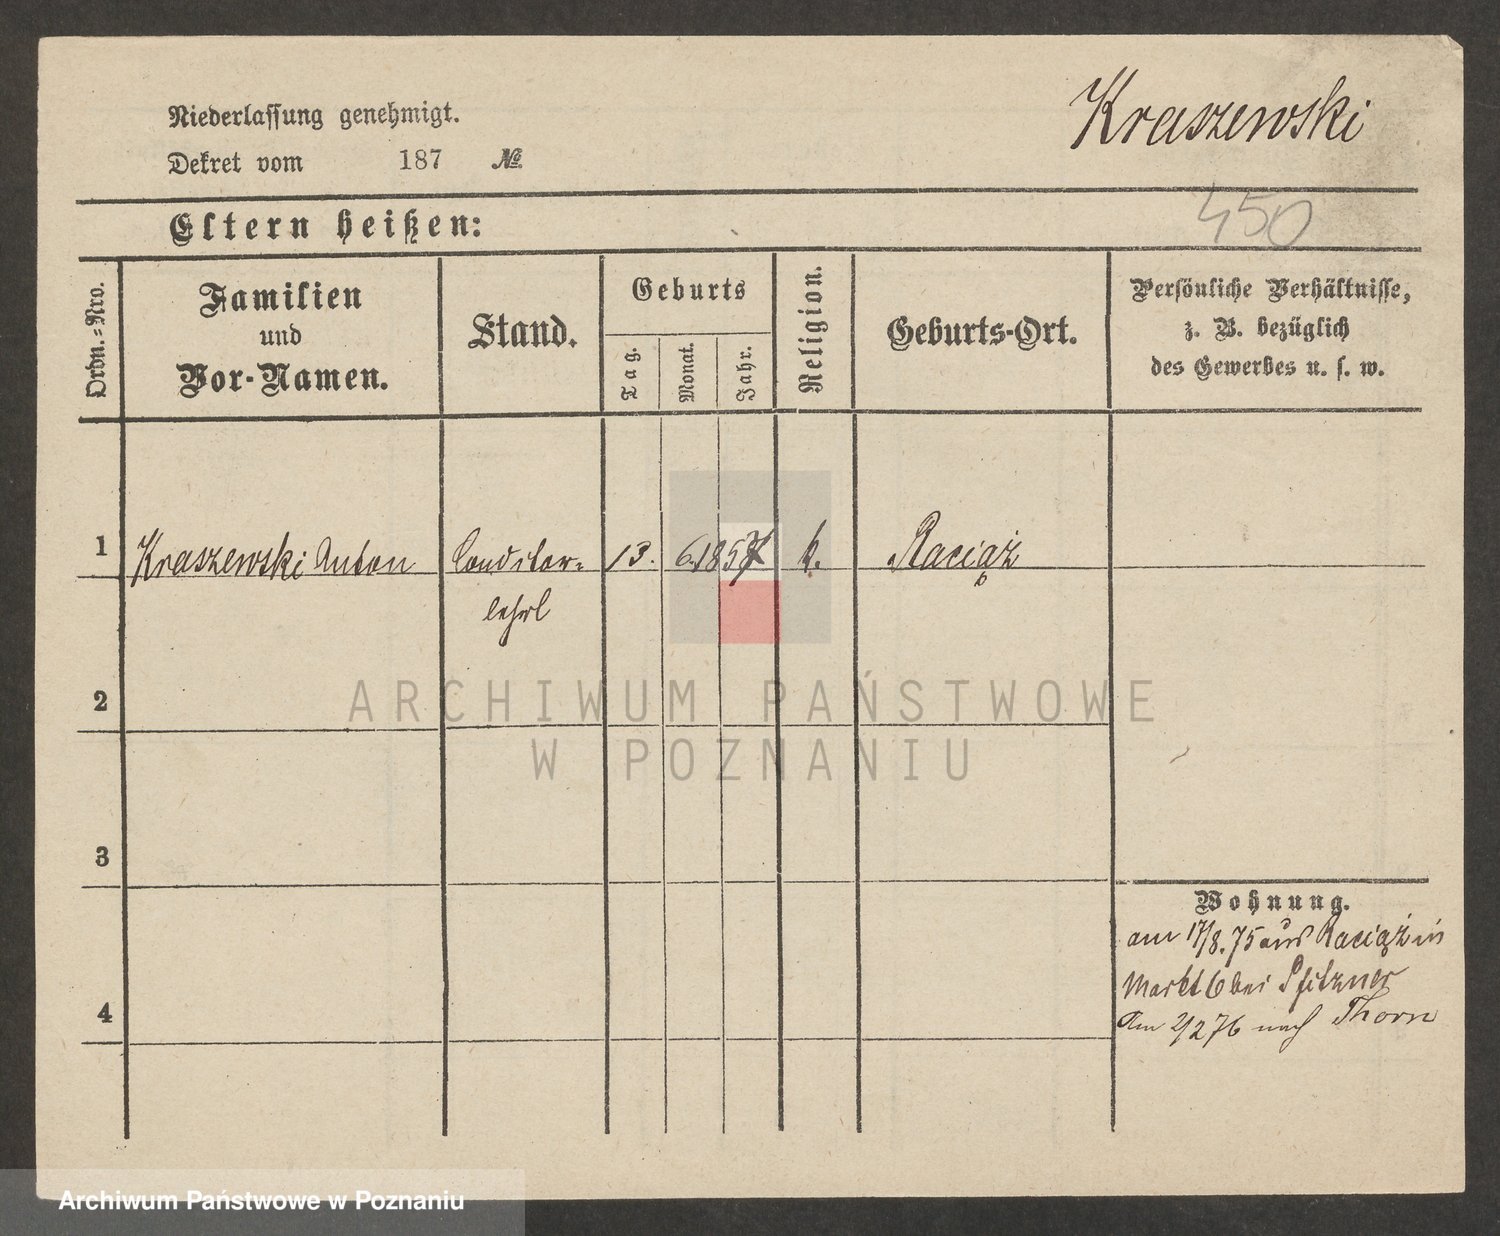 Kraszewski
Niederlassung genehmigt.
Dekret vom 187 №
450
Eltern heißen:
Ordn.-Nro.
Familien
und
Vor-Namen.
Stand.
Geburts
Tag.
Monat.
Jahr.
Religion.
Geburts-Ort.
Persönliche Verhältnisse,
z. B. bezüglich
des Gewerbes u. s. w.
1 Kraszewski Anton Conditor- 13. 6. 1857 k. Raciąż
lehrl
2
ARCHIWUM PAŃSTWOWE
W POZNANIU
3
Wohnung.
am 17/8.75 aus Raciąż in
Markt 6 bei Pfitzner
4
Am 2/2 76 nach Thorn
Archiwum Państwowe w Poznaniu